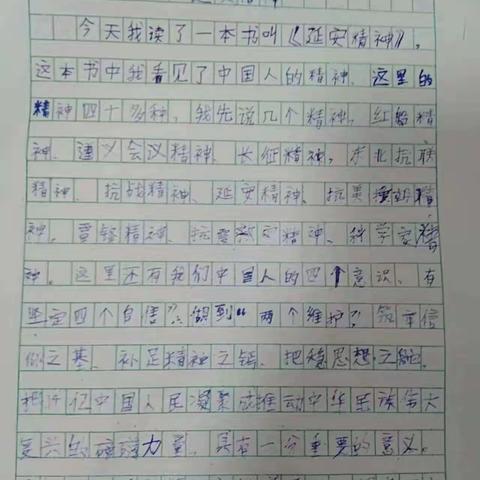 今天我读了一本书叫《延安精神》。
这本书中我看见了中国人的精神、这里的
精神四十多种，我先说几个精神，红船精
神、遵义会议精神、长征精神，东北抗联
精神、抗战精神、延安精神、抗美援朝精
神、雷锋精神、抗震救灾精神、科学家精
神。这里还有我们中国人的四个意识、有
坚定四个自信”：做到“两个维护”筑牢信
仰之基、补足精神之钙、把稳思想之舵、
把 亿中国人民凝聚成推动中华民族伟大
复兴的磅礴力量，具有一分重要的意义。